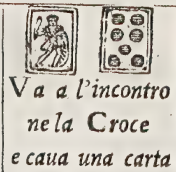 Va a l'incontro
ne la Croce
e caua una carta